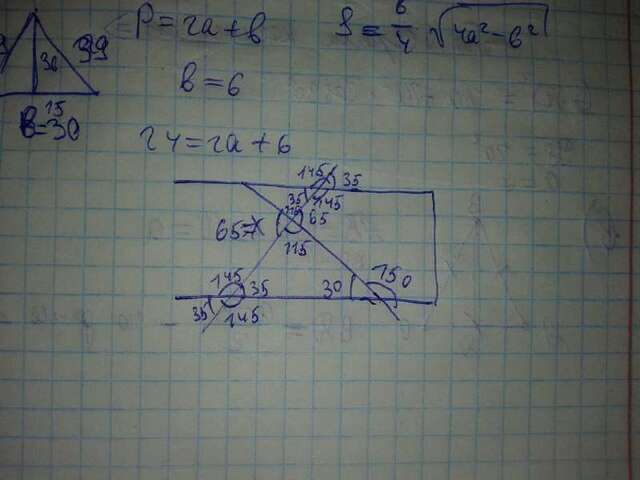 P = 2a + b
S = b/4 √4a² - b²
36
39
15
b = 30
b = 6
24 = 2a + 6
145 35
35 145
115 65
65 = x
115
145 35
35 145
30 150